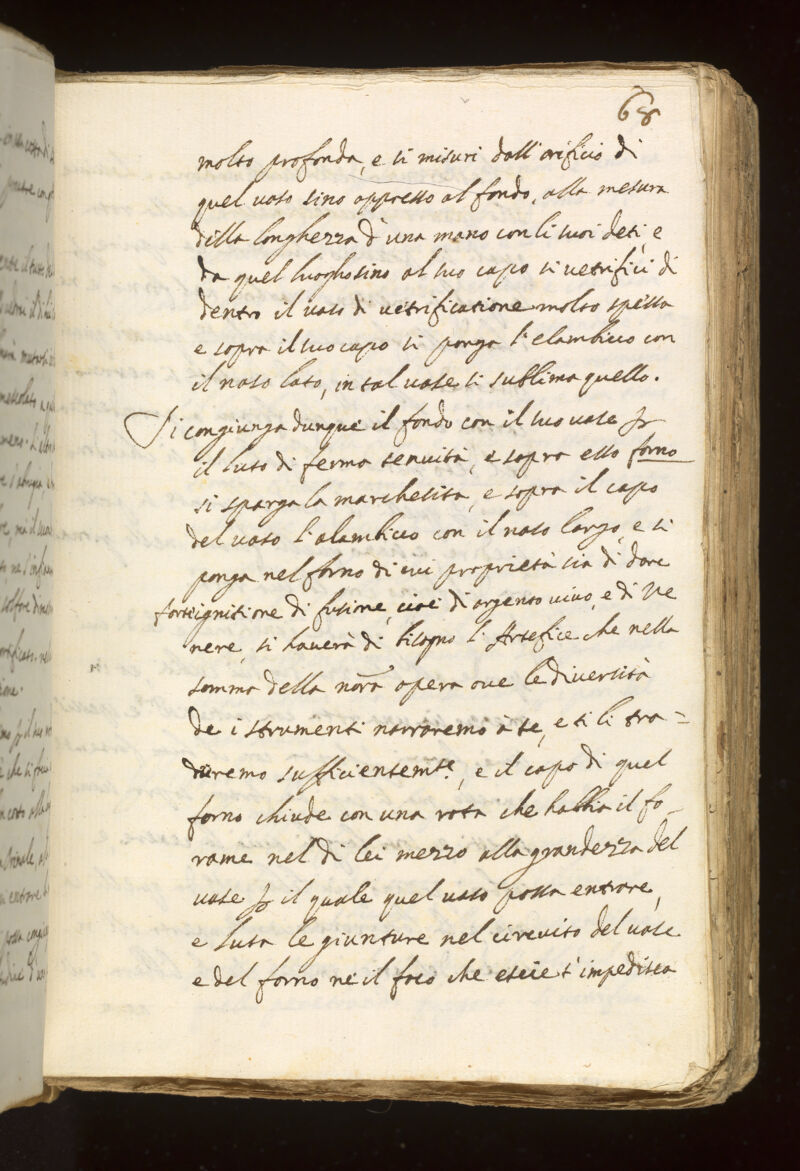 68
molto profonda, e si misuri dall'orificio di
quel uaso sino appresso al fondo, alla mesura
dilla longhezza d'una mano con li suoi deti, e
da quel luogho sino al suo capo si uetrifici di
dentro il uaso di uetrificatione molto spessa
e sopra il suo capo si ponga l'elambicco con
il naso lato, in tal uase si sublima quello.
Si congiunga dunque il fondo con il suo uase per
il luto di ferma tenuità, e sopra esso forno
si sparga la marchesita, e sopra il capo
del uaso l'alambicco con il naso largo, e si
ponga nel forno di cui proprietà sia di dare
forte ignitione di fusione, cioè di argento uiuo, e di Ve
nere, si hauerà di bisogno l'Artefice che nella
somma della nora opera oue le diuersità
de i strumenti narraremo à te, e ti li tra=
durremo sufficientemte, e il capo di quel
forno chiude con una rota che habbia il fo-
rame nel di lei mezzo alla grandezza del
uase per il quale quel uaso possa entrare,
e luta le giunture nel circuito del uase
e del forno ne il foco che escie s'impedisca